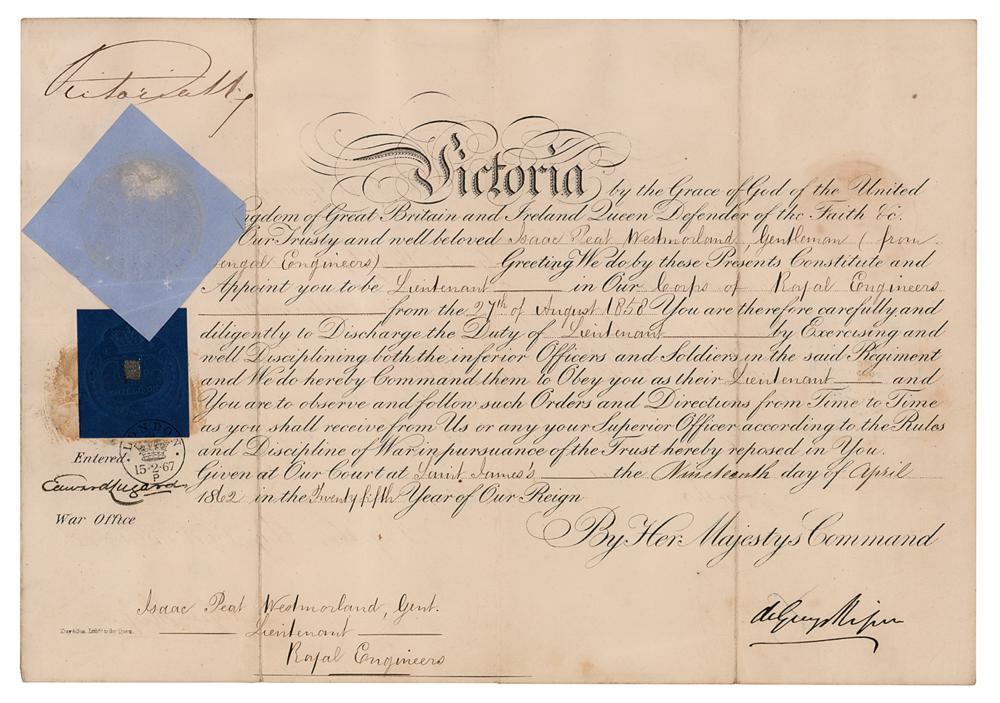 Victoria R
Victoria by the Grace of God of the United
Kingdom of Great Britain and Ireland Queen Defender of the Faith &c.
Our Trusty and well beloved Isaac Peat Westmorland Gentleman (from
Bengal Engineers) Greeting We do by these Presents Constitute and
Appoint you to be Lieutenant in Our Corps of Royal Engineers
from the 27th of August 1858 You are therefore carefully and
diligently to Discharge the Duty of Lieutenant by Exercising and
well Disciplining both the inferior Officers and Soldiers in the said Regiment
and We do hereby Command them to Obey you as their Lieutenant and
You are to observe and follow such Orders and Directions from Time to Time
as you shall receive from Us or any your Superior Officer according to the Rules
and Discipline of War in pursuance of the Trust hereby reposed in You.
Given at Our Court at Saint James's the Nineteenth day of April
1862 in the Twenty fifth Year of Our Reign
By Her Majestys Command
de Grey & Ripon
LONDON
15·2·67
P
Entered.
Edward Lugard
War Office
Isaac Peat Westmorland, Gent.
Lieutenant
Royal Engineers